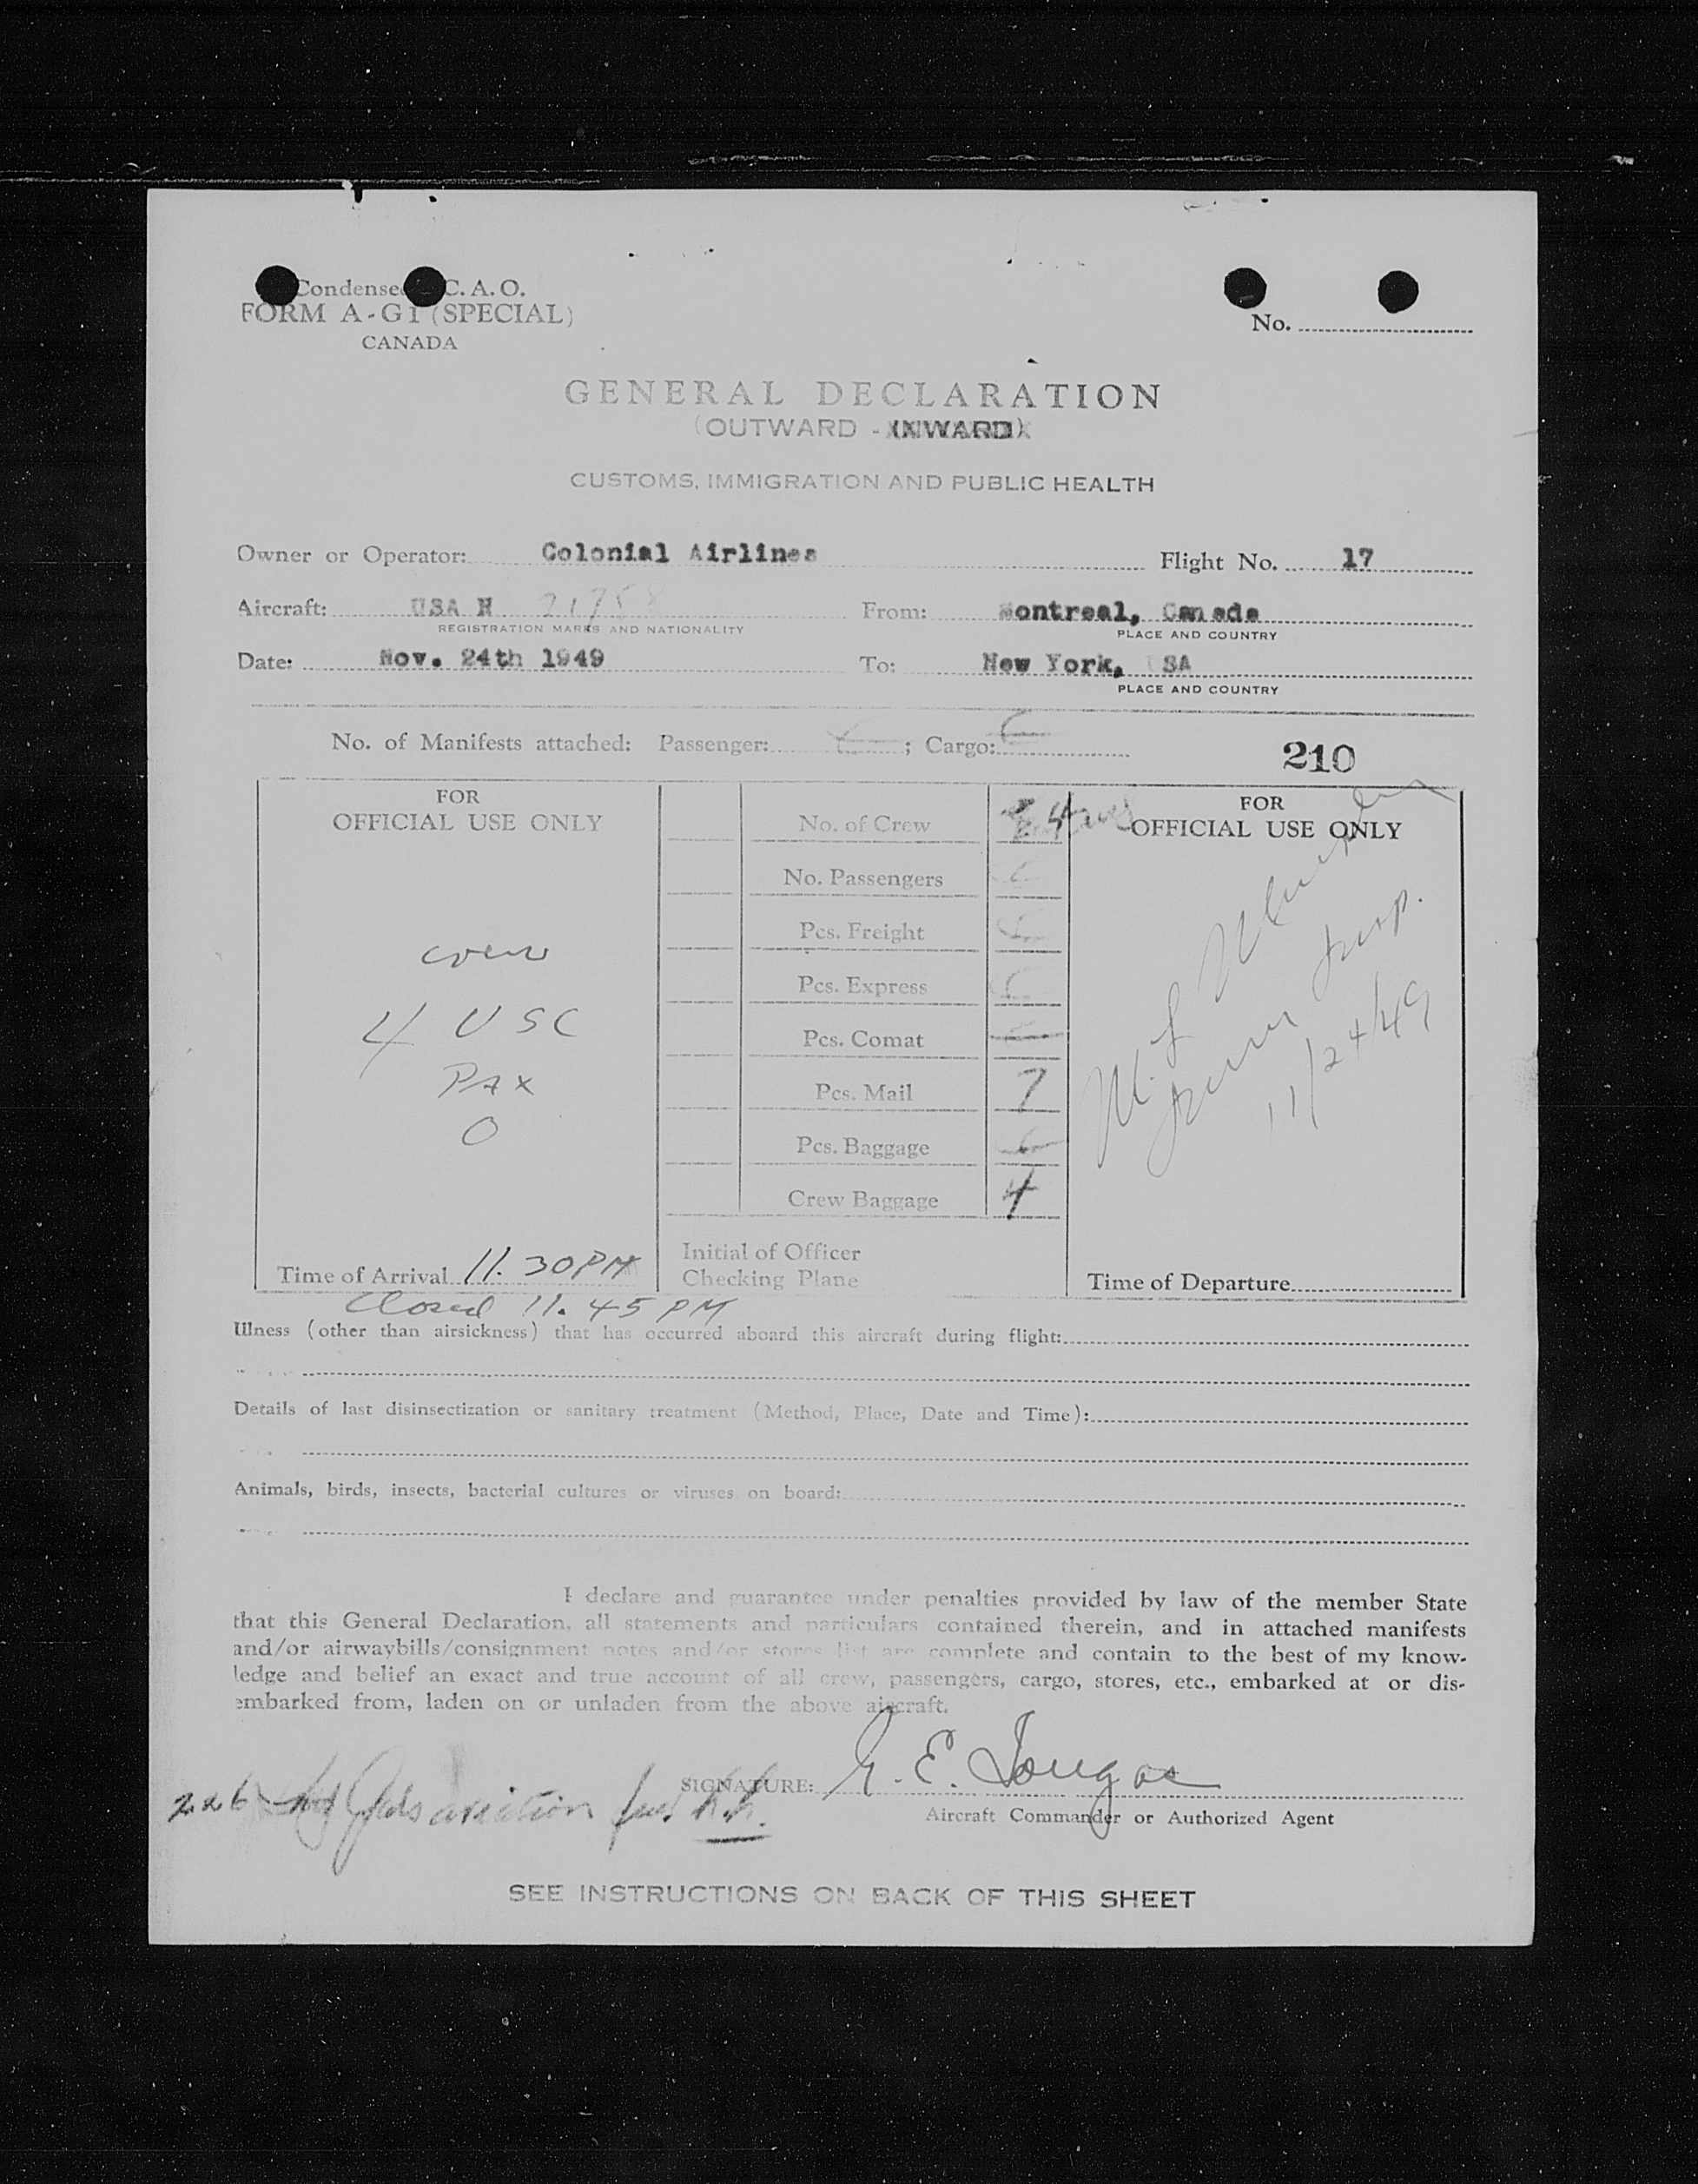 Condensed C. A. O.
FORM A-G1 (SPECIAL)
CANADA
No.
GENERAL DECLARATION
(OUTWARD - INWARD)
CUSTOMS, IMMIGRATION AND PUBLIC HEALTH
Owner or Operator: Colonial Airlines Flight No. 17
Aircraft: USA N From: Montreal, Canada
REGISTRATION MARKS AND NATIONALITY PLACE AND COUNTRY
Date: Nov. 24th 1949 To: New York, USA
PLACE AND COUNTRY
No. of Manifests attached: Passenger: ; Cargo:
210
FOR
OFFICIAL USE ONLY
crew
4 USC
PAX
0
Time of Arrival 11.30PM
Closed 11.45 PM
No. of Crew 4
No. Passengers
Pcs. Freight
Pcs. Express
Pcs. Comat
Pcs. Mail 7
Pcs. Baggage
Crew Baggage 4
Initial of Officer
Checking Plane
FOR
OFFICIAL USE ONLY
Insp.
11/24/49
Time of Departure
Illness (other than airsickness) that has occurred aboard this aircraft during flight:
Details of last disinsectization or sanitary treatment (Method, Place, Date and Time):
Animals, birds, insects, bacterial cultures or viruses on board:
I declare and guarantee under penalties provided by law of the member State
that this General Declaration, all statements and particulars contained therein, and in attached manifests
and/or airwaybills/consignment notes and/or stores list are complete and contain to the best of my know-
ledge and belief an exact and true account of all crew, passengers, cargo, stores, etc., embarked at or dis-
embarked from, laden on or unladen from the above aircraft.
SIGNATURE: G. E. Tougas
Aircraft Commander or Authorized Agent
SEE INSTRUCTIONS ON BACK OF THIS SHEET